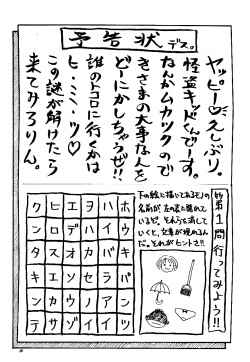 予告状デス。
ヤッピー♡えしぶり。
怪盗キッドくんでーす。
なんかムカツクので
きさまの大事な人を
どーにかしちゃうぜ!!
誰のトコロに行くかは
ヒ・ミ・ツ♡
この謎が解けたら
来てみろりん。
第1問 行ってみよう!!
下の絵に描いてあるモノの
名前が、左の表に隠れて
いるぜ。それらを消して
いくと、文章が現れるん
だ。それがヒントさ!!
ホウキパンツ
ハイバラアイ
ヲハカセノイ
エデオソウゾ
ヒロスエカサ
クンタキンテ